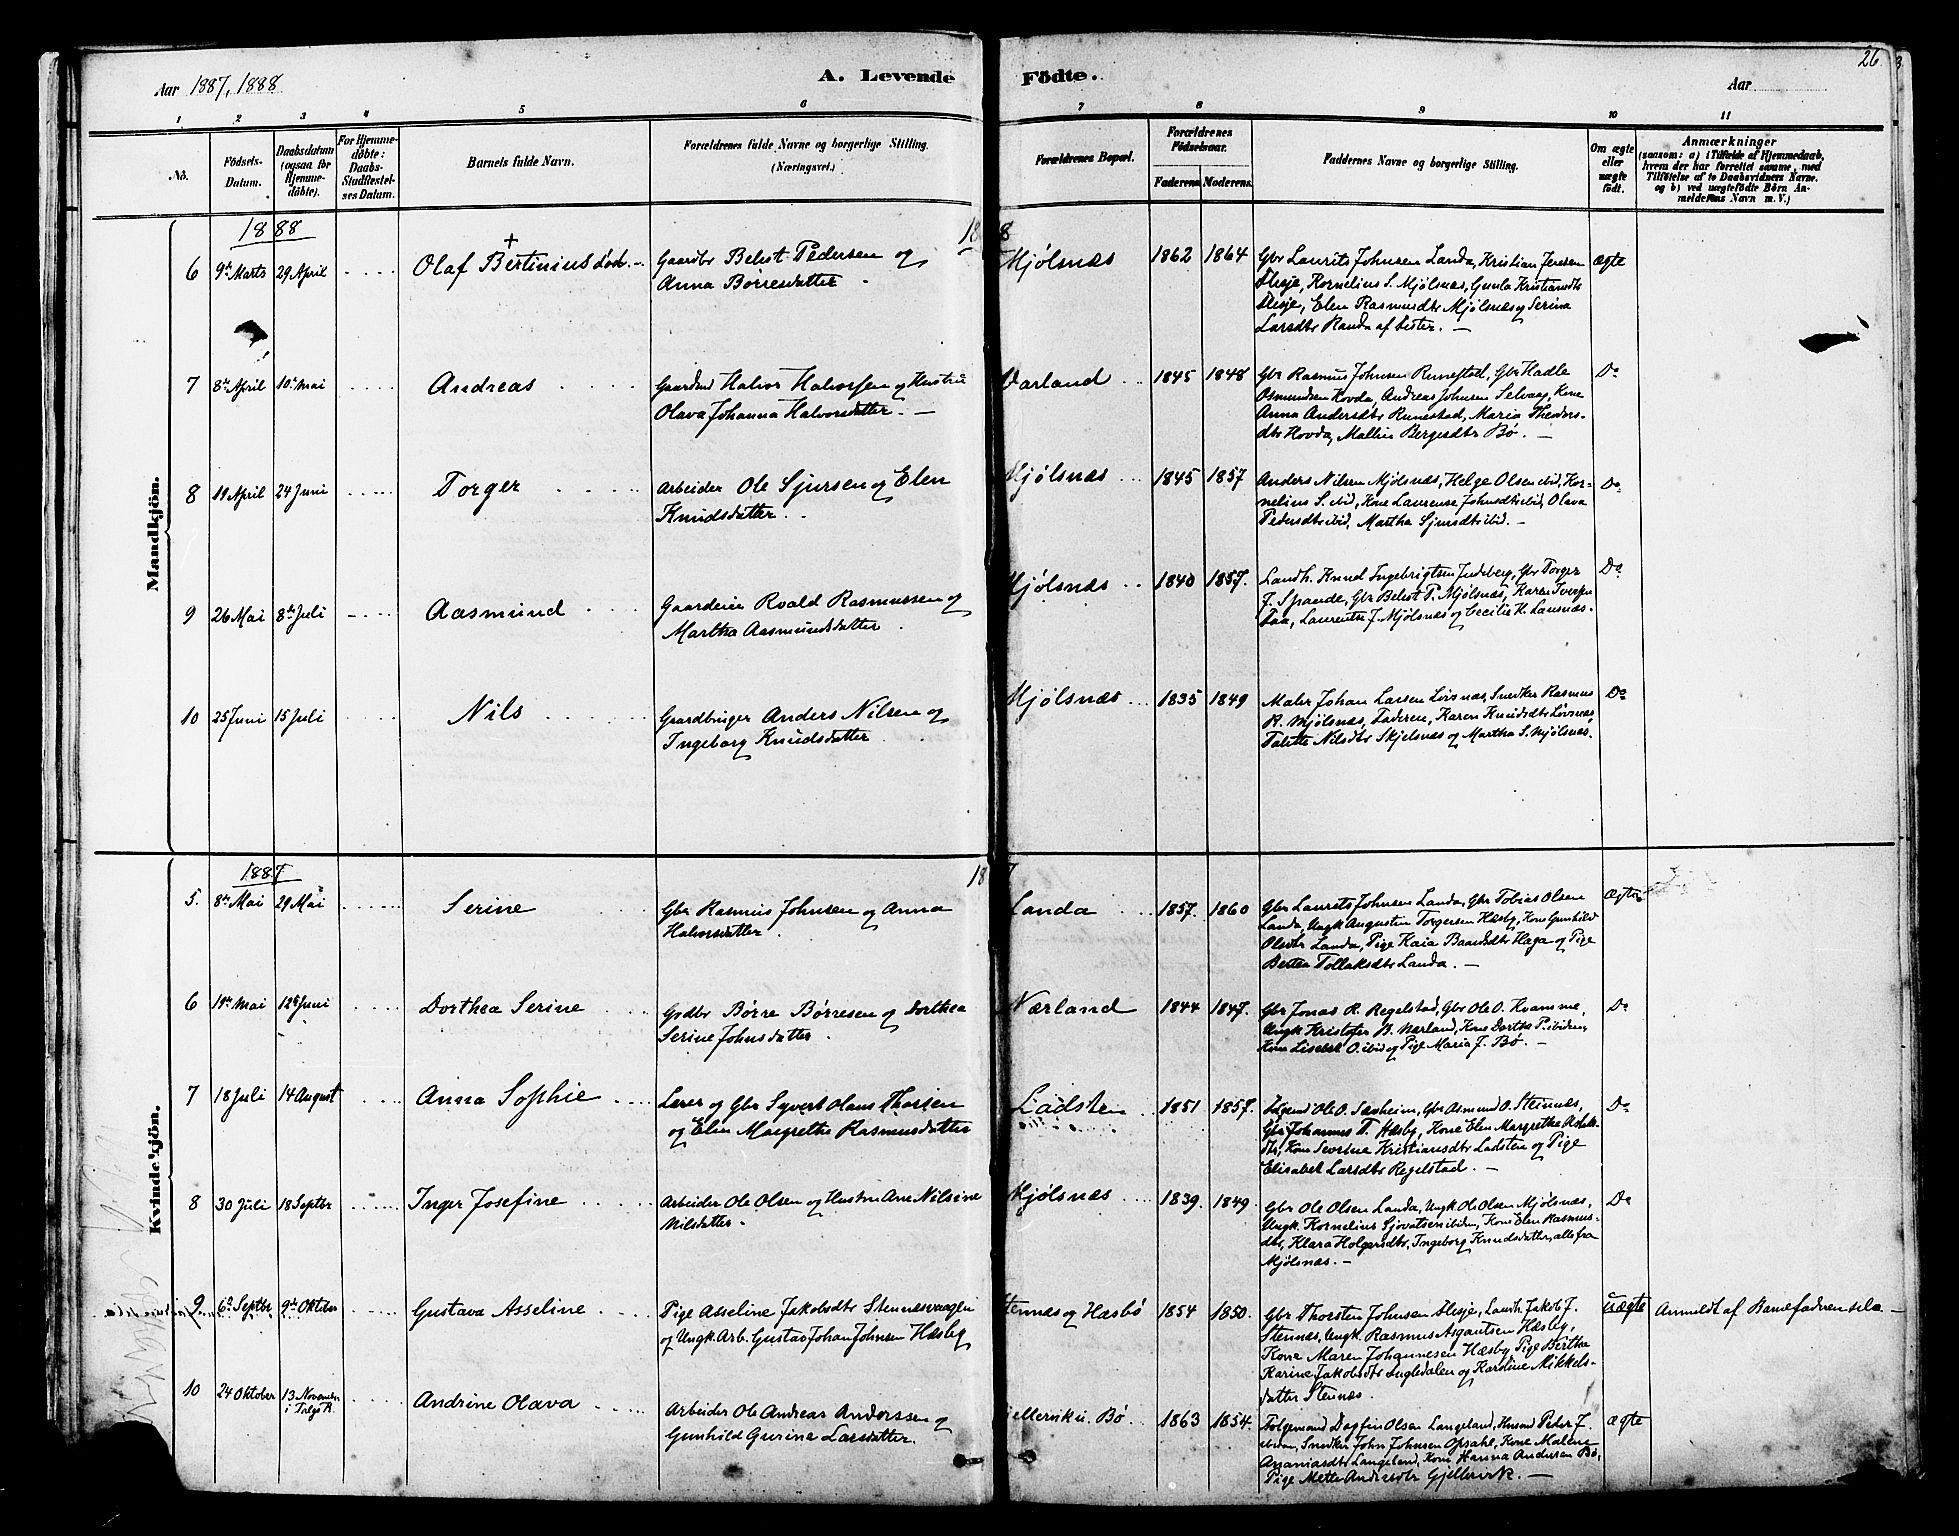 Aar 1887, 1888
A. Levende Födte.
Aar
26
1 2 3 4 5 6 7 8 9 10 11
No.
Födsels-
Datum.
Daabsdatum
(ogsaa for
Hjemme-
døbte).
For Hjemme-
døbte:
Daabs-
Stadfæstel-
ses Datum.
Barnets fulde Navn.
Forældrenes fulde Navne og borgerlige Stilling.
(Næringsvei.)
Forældrenes Bopæl.
Forældrenes
Födselsaar.
Faderens. Moderens.
Faddernes Navne og borgerlige Stilling.
Om ægte
eller
uægte
født.
Anmærkninger
(saasom: a) i Tilfælde af Hjemmedaab,
hvem der har forrettet samme, med
Tilföielse af to Daabsvidners Navne.
og b) ved uægtefödte Börn An-
melderens Navn m. V.)
Mandkjön.
1888
6 9de Marts 29 April Olaf Bertinius død. Gaardbr Behst Pedersen og
Anna Børresdatter
Mjølsnæs 1862 1864 Gbr Laurits Johnsen Landa, Kristian Jensen
Hesje, Kornelius S. Mjølsnæs, Gunla Kristiansdtr
Hesje, Elen Rasmusdtr Mjølsnæs og Serina
Larsdtr Randa af Lister. –
ægte
7 8de April 10de Mai Andreas Gaardmd Halvor Halvorsen og Hustru
Olava Johanna Halvorsdatter. –
Varland 1845 1848 Gbr Rasmus Johnsen Runestad, Gbr Hadle
Osmundsen Hovda, Andreas Johnsen Selvaag, Kone
Anna Andersdtr Runestad, Maria Theodors-
dtr Hovda, Mallin Bergesdtr Bø. –
Do
8 19 April 24 Juni Torger Arbeider Ole Sjursen og Elen
Knudsdatter.
Mjølsnæs 1845 1857 Anders Nilsen Mjølsnæs, Helge Olsen ibid, Kor-
nelius S. ibid, Kone Laurense Johnsdtr ibid, Olava
Pedersdtr ibid, Martha Sjursdtr ibid. –
Do
9 26 Mai 8de Juli Aasmund Gaardeier Roald Rasmussen og
Martha Aasmundsdatter
Mjølsnæs 1840 1857. Landh. Knud Ingebrigtsen Judeberg, Gbr Torger
J. Spande, Gbr Behst P. Mjølsnæs, Karen Iversen
Faa, Laurentse J. Mjølsnæs og Cecilie H. Lansnæs.
Do
10 25 Juni 15 Juli Nils Gaardbruger Anders Nilsen og
Ingeborg Knudsdatter
Mjølsnæs 1835 1849 Maler Johan Larsen Løvsnæs, Snedker Rasmus
R. Mjølsnæs, Faderen, Karen Knudsdtr Løvsnæs,
Talette Nilsdtr Skjelsnæs og Martha S. Mjølsnæs.
Do
Kvindekjön.
1887
5. 8de Mai 29 Mai Serine Gbr Rasmus Johnsen og Anna
Halvorsdatter.
Landa 1857. 1860 Gbr Laurits Johnsen Landa, Gbr Tobias Olsen
Landa, Ungk Augustin Torgersen Hæsby, Kone Gunhild
Olsdtr Landa, Pige Kaia Baardsdtr Haga og Pige
Berten Tollaksdtr Landa. –
Ægte
6 19de Mai 12te Juni Dorthea Serine Grdbr Børre Børresen og Dorthea
Serine Johnsdatter.
Nærland 1844 1847. Gbr Jonas R. Regelstad, Gbr Ole O. Kvamme,
Ungk Kristofer B. Nærland, Kone Dorthe P. ibidem,
Kone Lisebet O. ibid og Pige Maria J. Bø. –
Do
7 18 Juli 14 August Anna Sophie Lærer og Gbr Syvert Olaus Thorsen
og Elen Margrethe Rasmusdatter
Ladsten 1851 1857. Ole O. Sæsheim, Gbr Asmund O. Steinnæs,
Gbr Johannes T. Hæsby, Kone Elen Margrethe Aslak-
dtr, Kone Severine Kristiansdtr Ladsten og Pige
Elisabet Larsdtr Regelstad. –
Do
8 30 Juli 18 Septbr Inger Josefine Arbeider Ole Olsen og Hustru Ane Nilsine
Nilsdatter.
Mjølsnæs 1839 1849. Gbr Ole Olsen Landa, Ungk Ole Olsen Mjølsnæs,
Ungk. Kornelius Sjovatsen ibidem, Kone Elen Rasmus-
dtr, Klara Holgersdtr, Ingeborg Knudsdatter, alle fra
Mjølsnæs. –
Do
9 6te Septbr 9de Oktober Gustava Asseline Pige Asseline Jakobsdtr Stennesvaagen
og Ungk. Arb. Gustav Johan Johnsen Hæsby
Stennæs og Hæsbø 1854 1850. Gbr Thorsten Johnsen Hesje, Landh. Jakob J.
Stennæs, Ungk. Rasmus Asgautsen Hæsby,
Kone Maren Johannesen Hæsby, Pige Berthe
Karine Jakobsdtr Engledalen og Kardine Mikkels-
datter Stennæs.
uægte Anmeldt af Barnefaderen selv. –
10 24 Oktober 13 November
i Talgø K. Andrine Olava Arbeider Ole Andreas Anderssen og
Gunhild Gurine Larsdatter.
Gjellervik u. Bø 1863 1854. Følgemand Dagfin Olsen Langeland, Husmd Peder J.
ibidem, Snedker John Johnsen Opsahl, Kone Malene
Ananiasdtr Langeland, Kone Hanna Andersen Bø,
Pige Mette Andersdtr Gjellervik. –
ægte